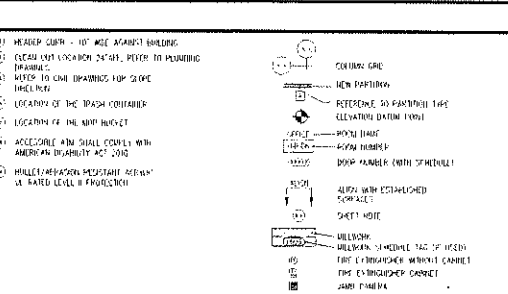 HEADER CURB - 10" WIDE AGAINST BUILDING
CLEAN OUT LOCATION REFER TO PLUMBING
DRAWINGS
REFER TO CIVIL DRAWINGS FOR SLOPE
DIRECTION
LOCATION OF THE TRASH CONTAINER
LOCATION OF THE MOP BUCKET
ACCESSIBLE ATM SHALL COMPLY WITH
AMERICAN DISABILITY ACT 2010
BULLET/ABRASION RESISTANT ACRYLIC
UL RATED LEVEL II PROTECTION
COLUMN GRID
NEW PARTITION
REFERENCE TO PARTITION TYPE
ELEVATION DATUM POINT
OFFICE
ROOM NAME
ROOM NUMBER
DOOR NUMBER (WITH SCHEDULE)
ALIGN
ALIGN WITH ESTABLISHED
SURFACES
SHEET NOTE
MILLWORK
MILLWORK SCHEDULE TAG (IF USED)
FIRE EXTINGUISHER WITHOUT CABINET
FIRE EXTINGUISHER CABINET
CAMERA